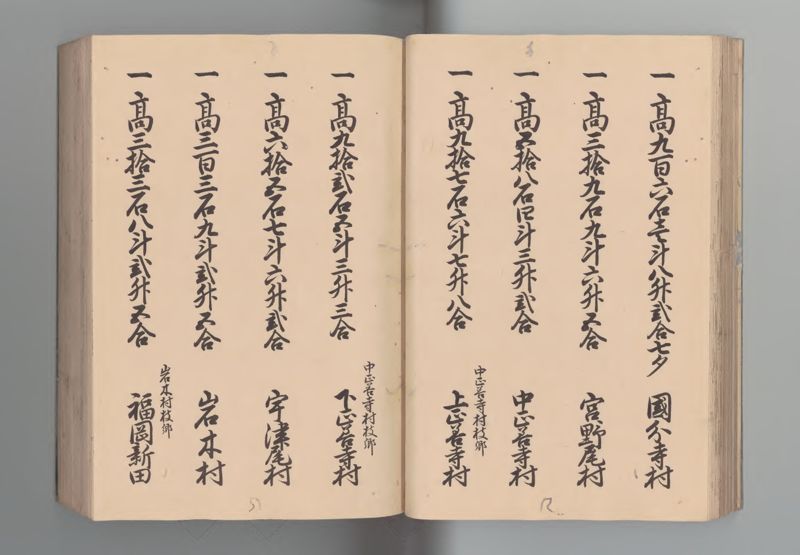 一 高九百六石壱斗八升弐合七夕 國分寺村
一 高三拾九石九斗六升五合 宮野尾村
一 高五拾八石四斗三升弐合 中山善寺村
一 高九拾七石六斗七升八合 中山善寺村枝郷 上山善寺村
一 高九拾弐石五斗三升三合 中山善寺村枝郷 下山善寺村
一 高六拾五石七斗六升弐合 宇津尾村
一 高三百三石九斗弐升五合 岩木村
一 高三拾三石八斗弐升五合 岩木村枝郷 福岡新田